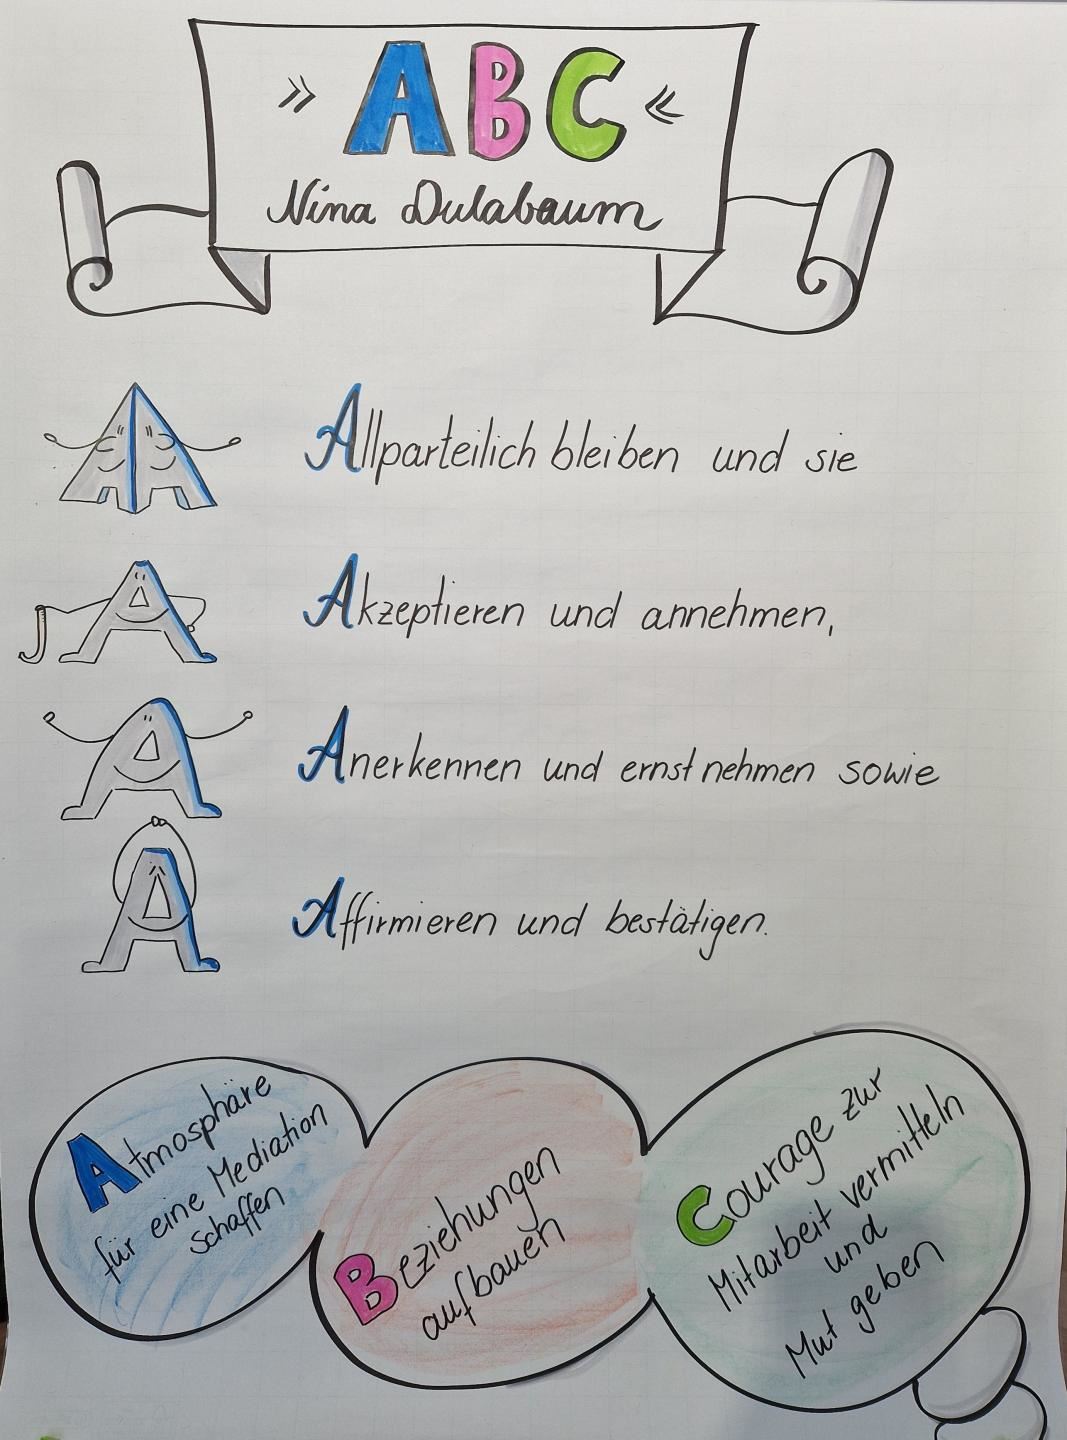 » ABC «
Nina Dulabaum
Allparteilich bleiben und sie
Akzeptieren und annehmen,
Anerkennen und ernst nehmen sowie
Affirmieren und bestätigen.
Atmosphäre
für eine Mediation
schaffen
Beziehungen
aufbauen
Courage zur
Mitarbeit vermitteln
und
Mut geben